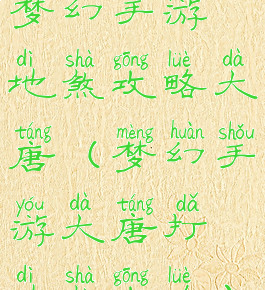 梦幻手游
dì shà gōng lüè dà
地煞攻略大
táng mèng huàn shǒu
唐（梦幻手
yóu dà táng dǎ
游大唐打
dì shà gōng lüè
地煞攻略